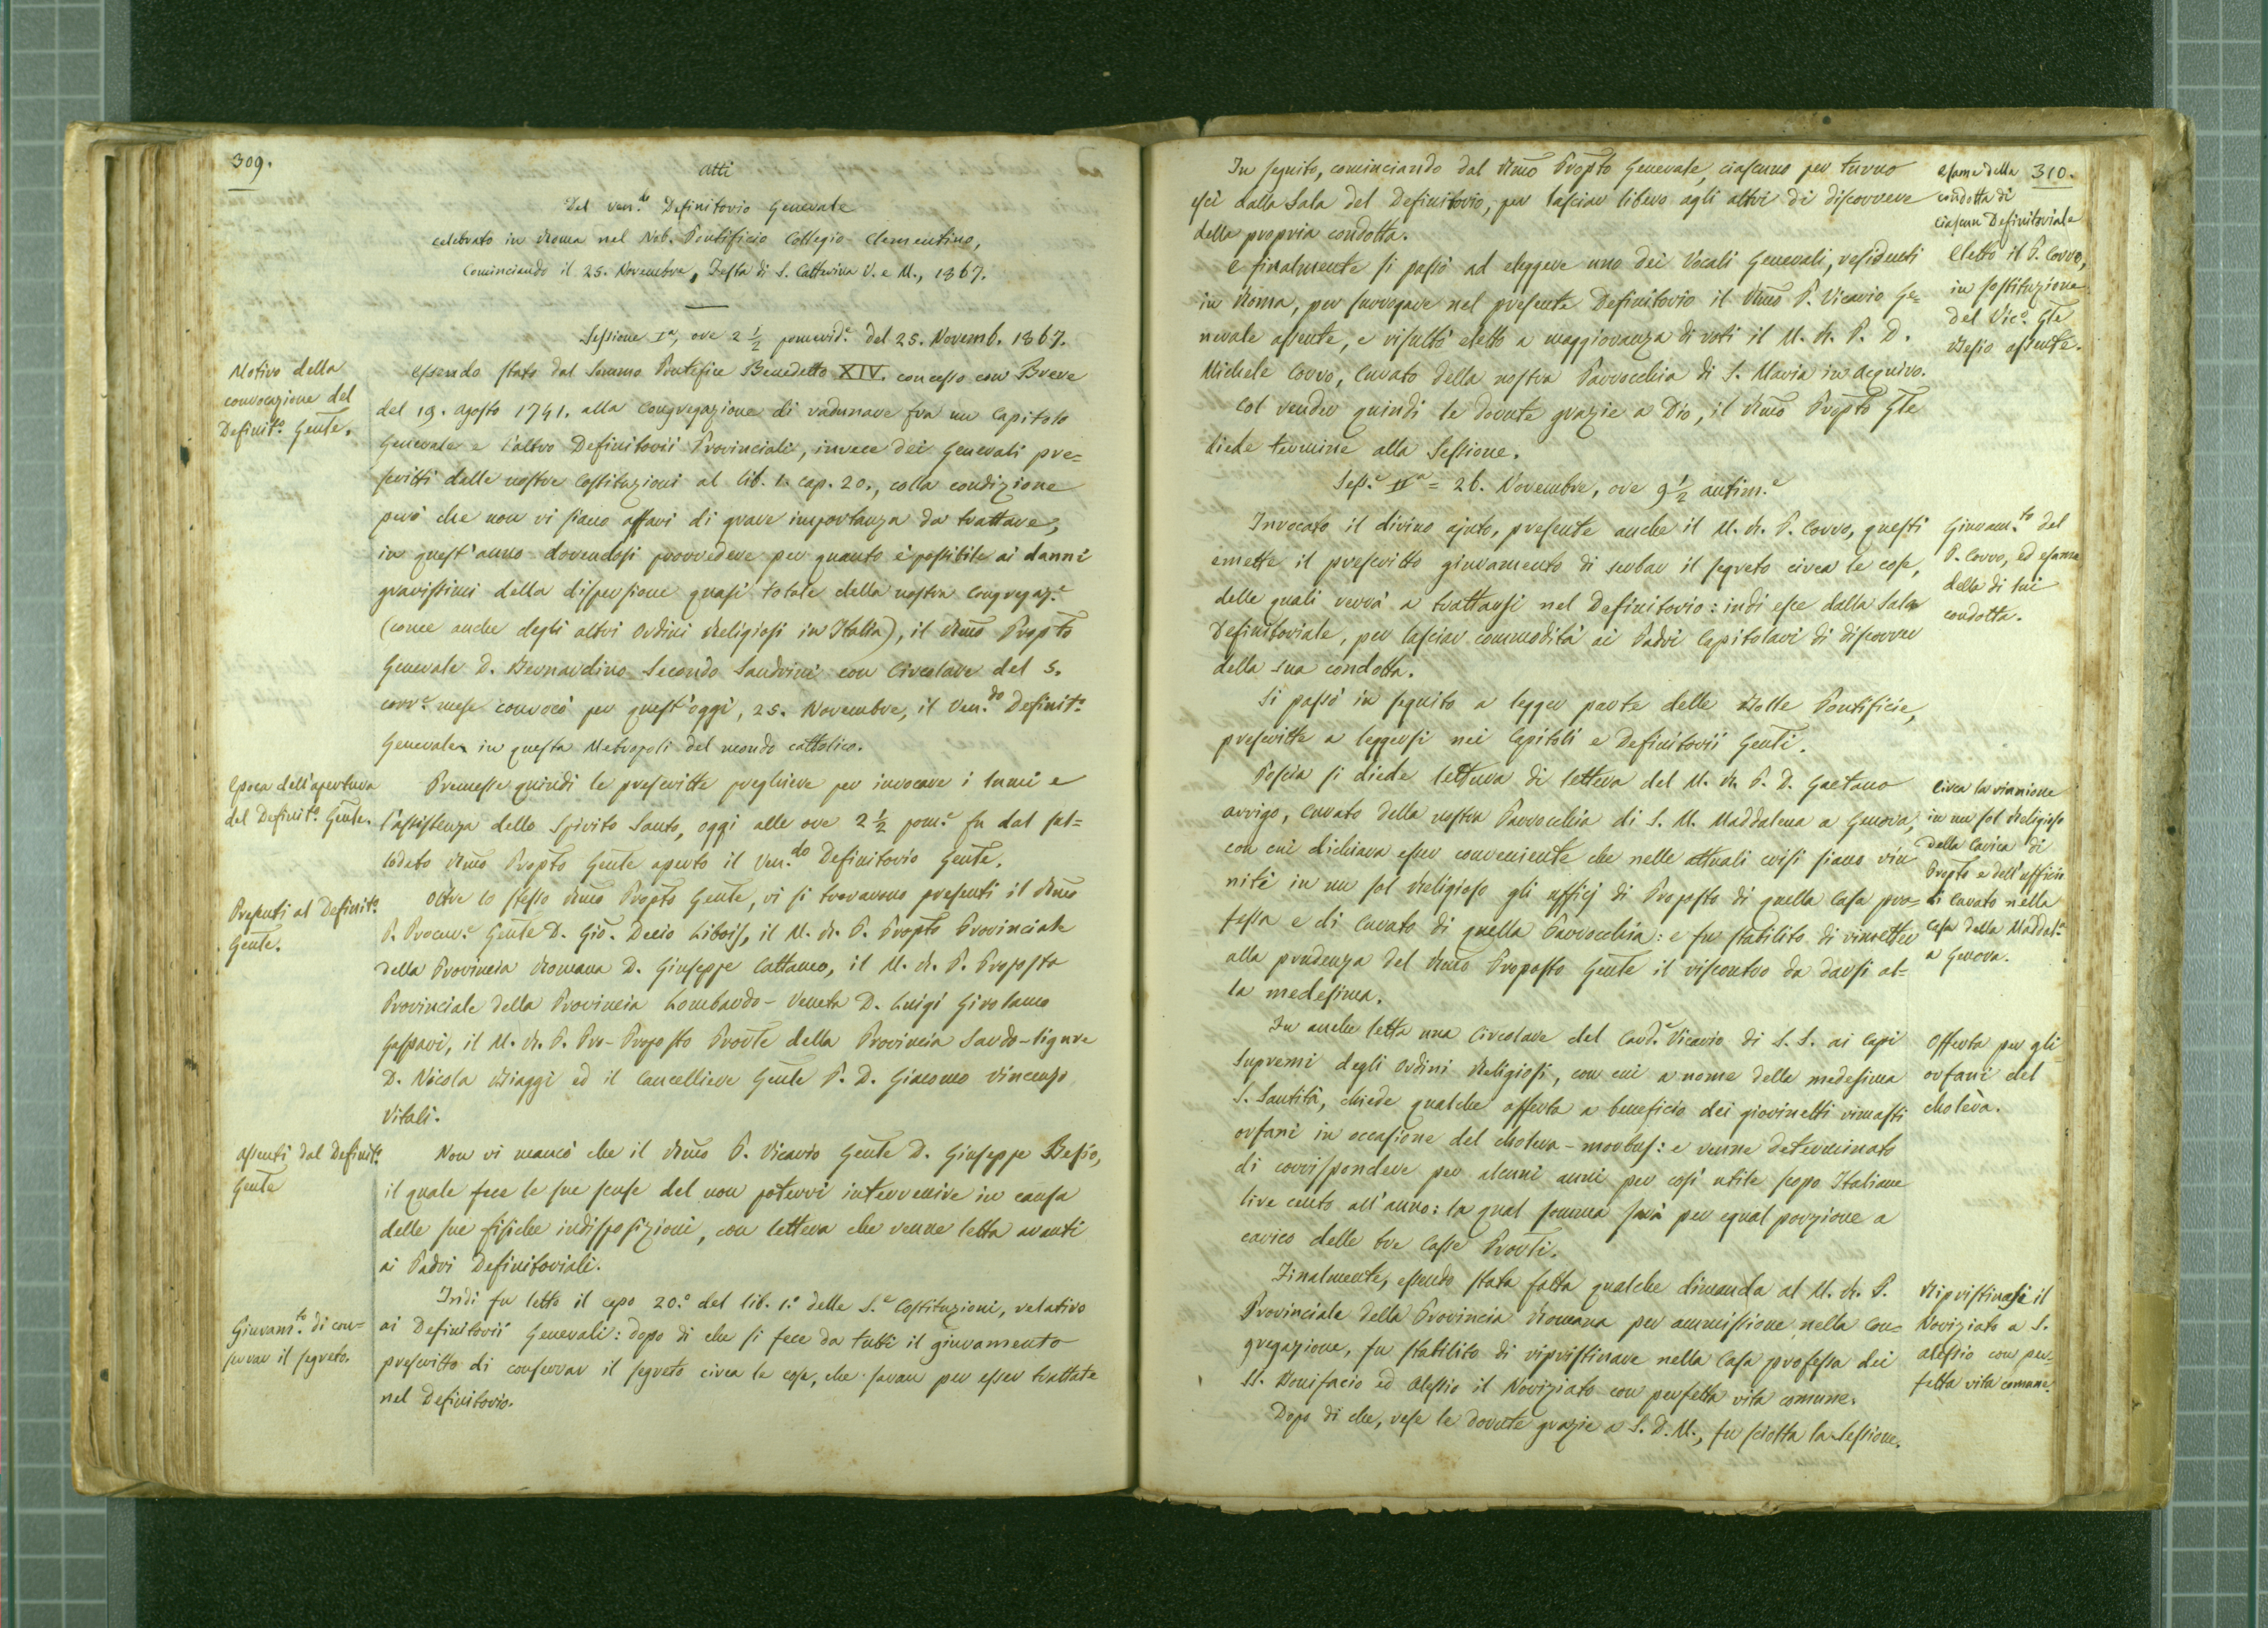 309.
Atti
Del ven.do Definitorio Generale
celebrato in Roma nel Nob. Pontificio Collegio Clementino,
Cominciando il 25. Novembre, Festa di S. Catterina V. e M., 1867.
Sessione I.a, ore 2 1/2 pomerid.e del 25. Novemb. 1867.
Motivo della
convocazione del
Definit.o Gen̅te.
Essendo stato dal Sommo Pontefice Benedetto XIV. concesso con Breve
del 19. Agosto 1741. alla Congregazione di radunare fra un Capitolo
Generale e l'altro Definitorii Provinciali, invece dei Generali pre=
scritti dalle nostre Costituzioni al lib. 1. cap. 20., colla condizione
però che non vi siano affari di grave importanza da trattare;
in quest'anno dovendosi provvedere per quanto è possibile ai danni
gravissimi della dispersione quasi totale della nostra Congregaz.e
(come anche degli altri Ordini Religiosi in Italia), il Rm̅o Propto
Generale D. Bernardino Secondo Sandrini con Circolare del 5.
corr.e mese convocò per quest'oggi, 25. Novembre, il Ven.do Definit.o
Generale in questa Metropoli del mondo cattolico.
Epoca dell'apertura
del Definit.o Gen̅le.
Premesse quindi le prescritte preghiere per invocare i lumi e
l'assistenza dello Spirito Santo, oggi alle ore 2 1/2 pom.e fu dal sul=
lodato Rm̅o Propto Gen̅le aperto il Ven.do Definitorio Gen̅le.
Presenti al Definit.o
Gen̅le.
Oltre lo stesso Rm̅o Propto Gen̅le, vi si trovavono presenti il Rm̅o
P. Procur.e Gen̅le D. Gio̅. Decio Libois, il M. R. P. Propto Provinciale
della Provincia Romana D. Giuseppe Cattaneo, il M. R. P. Proposto
Provinciale della Provincia Lombardo-Veneta D. Luigi Girolamo
Gaspari, il M. R. P. Pro-Proposto Prov̅le della Provincia Sardo-ligure
D. Nicola Biaggi ed il Cancelliere Gen̅le P. D. Giacomo Vincenzo
Vitali.
Assenti dal Definit.o
Gen̅le
Non vi mancò che il Rm̅o P. Vicario Gen̅le D. Giuseppe Besio,
il quale fece le sue scuse del non potervi intervenire in causa
delle sue fisiche indisposizioni, con lettera che venne letta avanti
ai Padri Definitoriali.
Giuram.to di con=
servar il segreto.
Indi fu letto il capo 20.o del lib. 1.o delle S.e Costituzioni, relativo
ai Definitorii Generali: dopo di che si fece da tutti il giuramento
prescritto di conservar il segreto circa le cose, che saran per esser trattate
nel Definitorio.
310.
Esame della
condotta di
ciascun Definitoriale
In seguito, cominciando dal Rm̅o Propto Generale, ciascuno per turno
escì dalla Sala del Definitorio, per lasciar libero agli altri di discorrere
della propria condotta.
Eletto il P. Corvo,
in sostituzione
del Vic.o Gle
Besio assente.
E finalmente si passò ad eleggere uno dei Vocali Generali, residenti
in Roma, per surrogare nel presente Definitorio il Rm̅o P. Vicario Ge=
nerale assente, e risultò eletto a maggioranza di voti il M. R. P. D.
Michele Corvo, Curato della nostra Parrocchia di S. Maria in Aquiro.
Col render quindi le dovute grazie a Dio, il Rm̅o Propto Gle
diede termine alla Sessione.
Sess.e II.a = 26. Novembre, ore 9 1/2 antim.e
Giuram.to del
P. Corvo, ed esame
della di lui
condotta.
Invocato il divino ajuto, presente anche il M. R. P. Corvo, questi
emette il prescritto giuramento di serbar il segreto circa le cose,
delle quali verrà a trattarsi nel Definitorio: indi esce dalla Sala
Definitoriale, per lasciar commodità ai Padri Capitolari di discorrer
della sua condotta.
Si passò in seguito a legger parte delle Bolle Pontificie,
prescritte a leggersi nei Capitoli e Definitorii Gen̅li.
Circa la riunione
in un sol Religioso
della Carica di
Propto e dell'officio
di Curato nella
Casa della Maddal.a
a Genova.
Poscia si diede lettura di lettera del M. R. P. D. Gaetano
Arrigo, Curato della nostra Parrocchia di S. M. Maddalena a Genova,
con cui dichiara esser conveniente che nelle attuali crisi siano riu=
niti in un sol Religioso gli ufficj di Proposto di quella Casa pro=
fessa e di Curato di quella Parrocchia: e fu stabilito di rimetter
alla prudenza del Rm̅o Proposto Gen̅le il riscontro da darsi al=
la medesima.
Offerta per gli
orfani del
cholèra.
Fu anche letta una Circolare del Card.e Vicario di S. S. ai Capi
supremi degli Ordini Religiosi, con cui a nome della medesima
S. Santità, chiede qualche offerta a beneficio dei giovinetti rimasti
orfani in occasione del cholera-morbus: e venne determinato
di corrispondere per alcuni anni per così utile scopo Italiane
lire cento all'anno: la qual somma sarà per egual porzione a
carico delle tre Casse Prov̅li.
Ripristinasi il
Noviziato a S.
Alessio con per=
fetta vita comune.
Finalmente, essendo stata fatta qualche dimanda al M. R. P.
Provinciale della Provincia Romana per ammissione nella Con=
gregazione, fu stabilito di ripristinare nella Casa professa dei
SS. Bonifacio ed Alessio il Noviziato con perfetta vita comune.
Dopo di che, rese le dovute grazie a S. D. M., fu sciolta la Sessione.